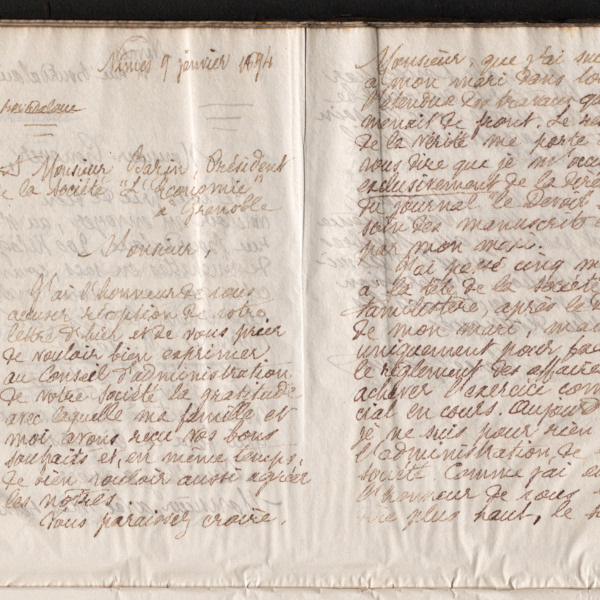 Nîmes 9 janvier 1894
Monsieur Barin, Président
de la société "L'Économie"
à Grenoble
Monsieur,
J'ai l'honneur de vous
accuser réception de votre
lettre d'hier et de vous prier
de vouloir bien exprimer
au Conseil d'administration
de votre société la gratitude
avec laquelle ma famille et
moi avons reçu vos bons
souhaits et, en même temps,
de bien vouloir aussi agréer
les nôtres.
Vous paraissez croire,
Monsieur, que j'ai suc
à mon mari dans to
l'étendue des travaux qu
menait de front. Le res
de la vérité me porte
vous dire que je m'occu
exclusivement de la
du journal le Devoir
soin des manuscrits
par mon mari.
J'ai passé cinq m
à la tête de la Société
familistère, après le
de mon mari, ma
uniquement pour fac
le règlement des affaires
achever l'exercice com
cial en cours. Aujourd
je ne suis pour rien
l'administration de
société. Comme j'ai eu
l'honneur de vous
dire plus haut, le s